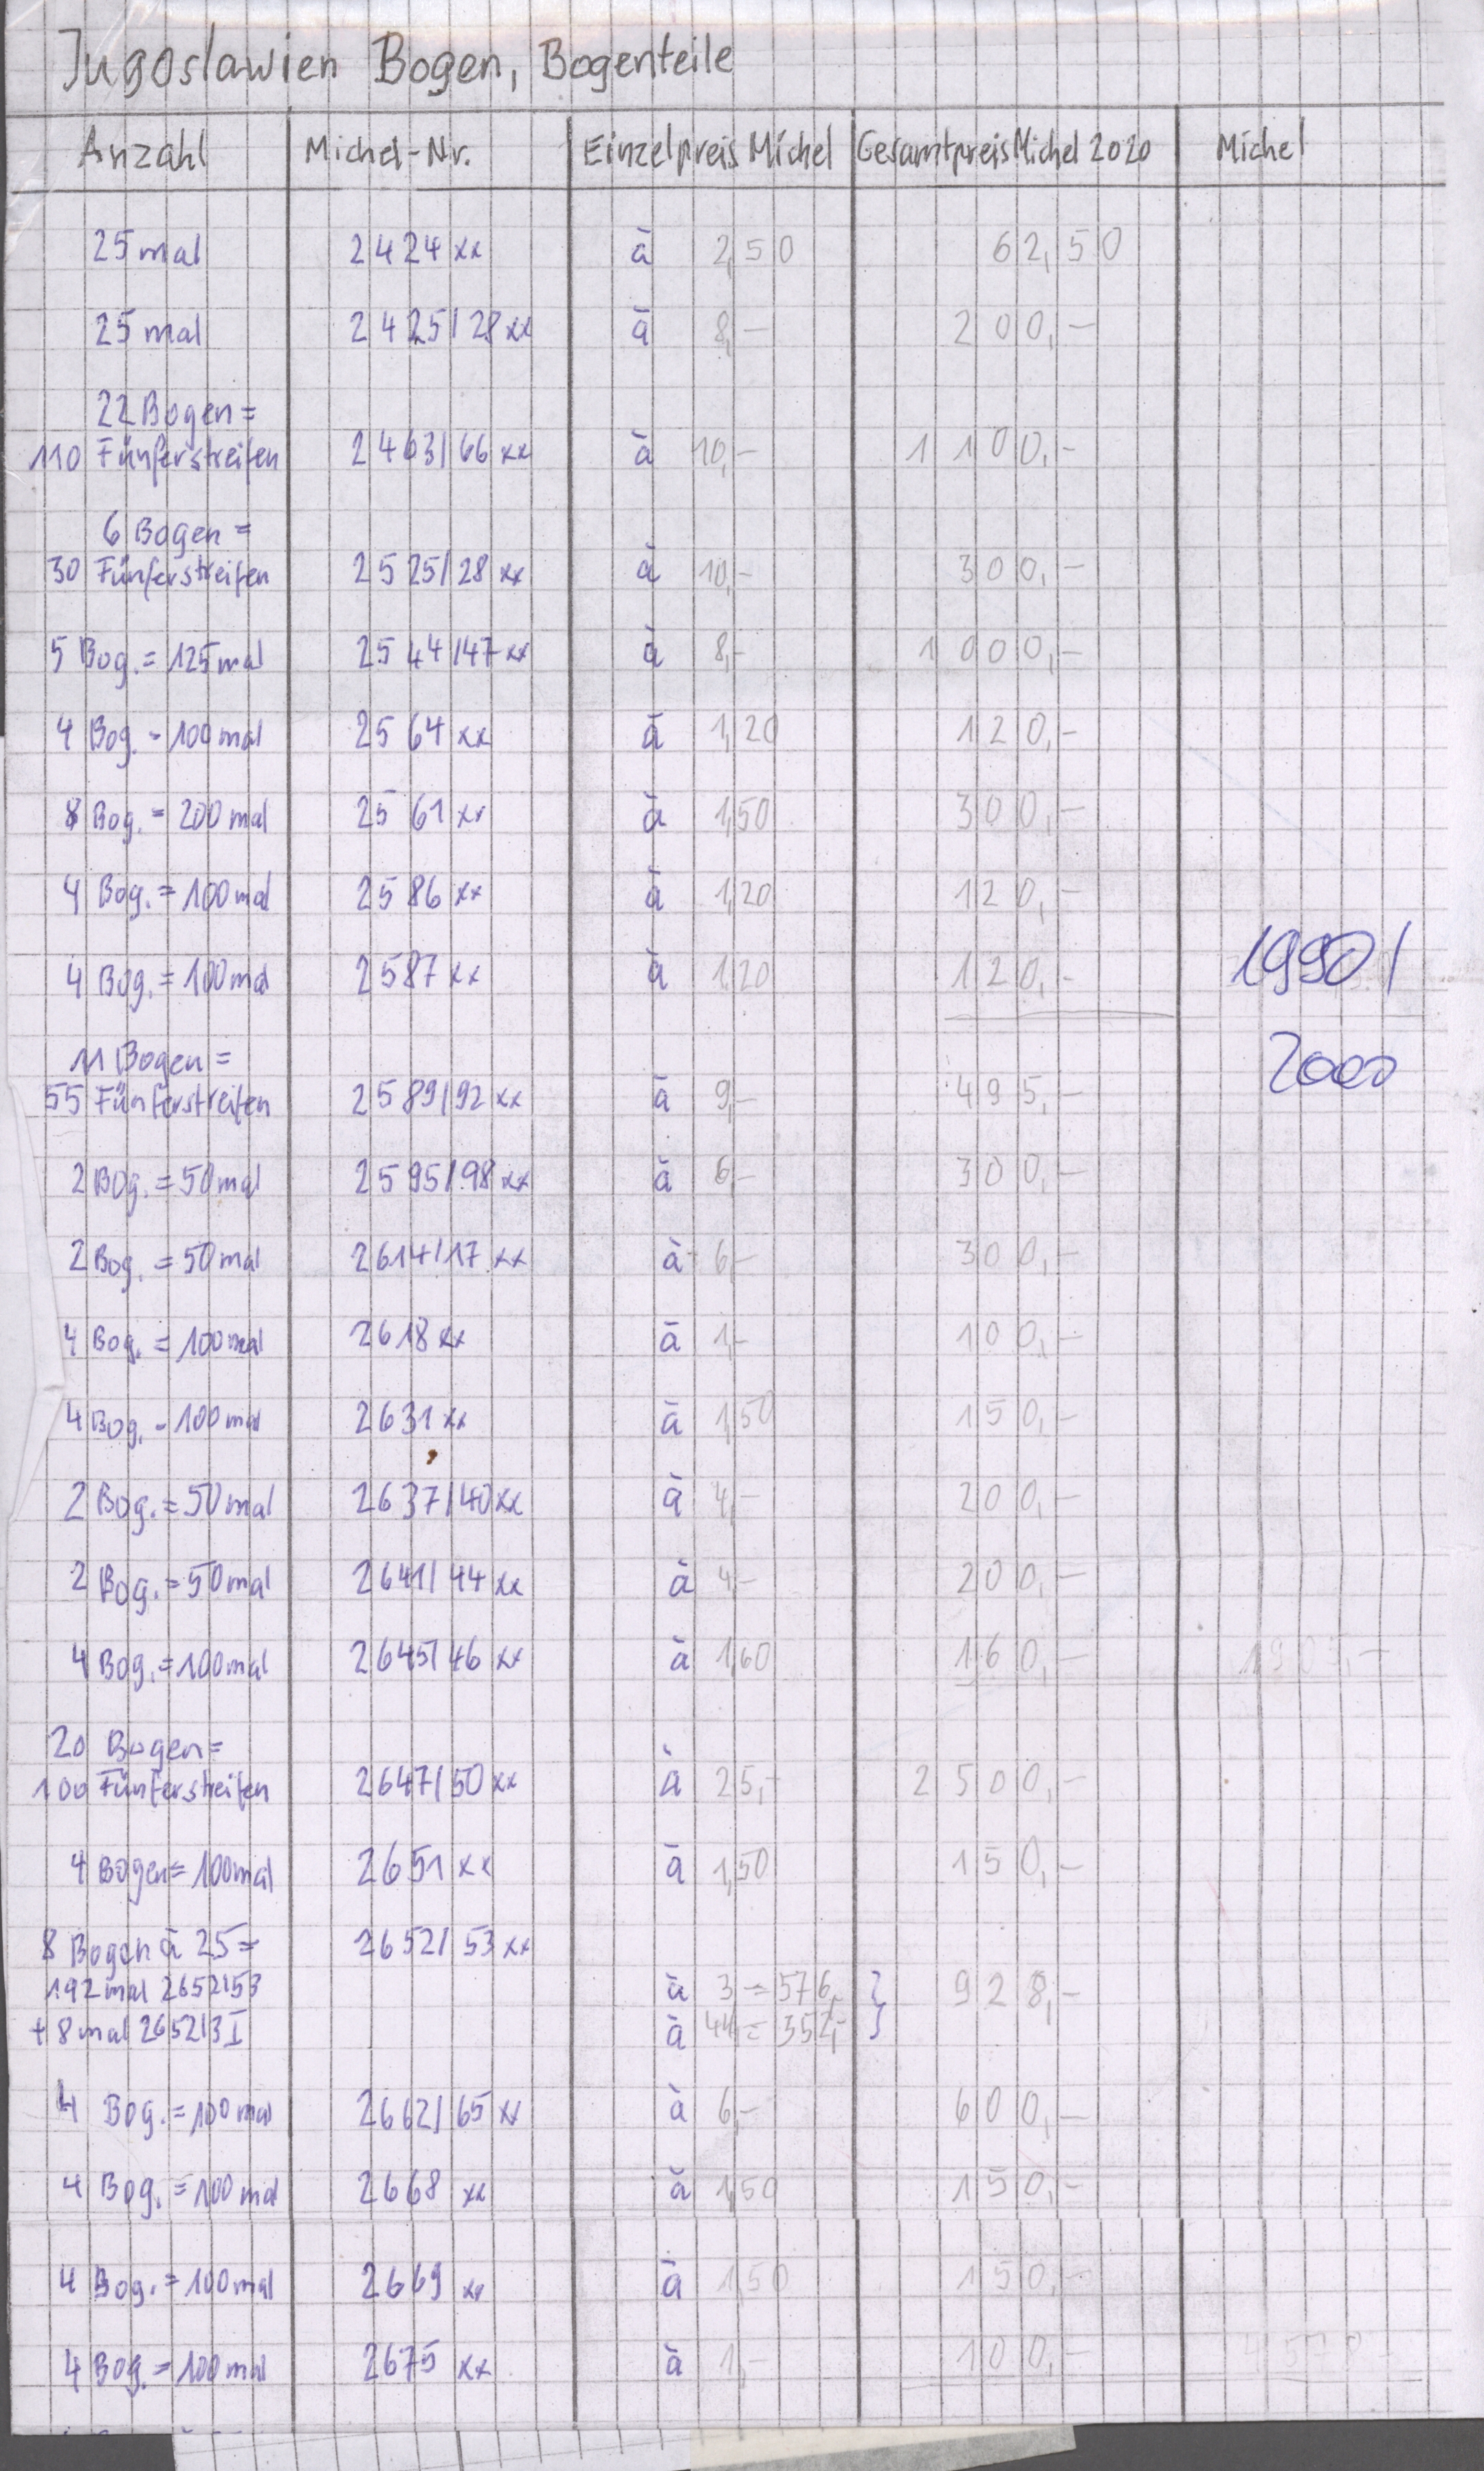 Jugoslawien Bogen, Bogenteile
Anzahl Michel-Nr. Einzelpreis Michel Gesamtpreis Michel 2020 Michel
25 mal 2424 xx à 2,50 62,50
25 mal 2425/28 xx à 8,- 200,-
22 Bogen =
110 Fünferstreifen 2463/66 xx à 10,- 1100,-
6 Bogen =
30 Fünferstreifen 2525/28 xx à 10,- 300,-
5 Bog. = 125 mal 2544/47 xx à 8,- 1000,-
4 Bog. - 100 mal 2564 xx à 1,20 120,-
8 Bog. = 200 mal 2561 xx à 1,50 300,-
4 Bog. = 100 mal 2586 xx à 1,20 120,-
4 Bog. = 100 mal 2587 xx à 1,20 120,- 1990/
2000
11 Bogen =
55 Fünferstreifen 2589/92 xx à 9,- 495,-
2 Bog. = 50 mal 2595/98 xx à 6,- 300,-
2 Bog. = 50 mal 2614/17 xx à 6,- 300,-
4 Bog. = 100 mal 2618 xx à 1,- 100,-
4 Bog. - 100 mal 2631 xx à 1,50 150,-
2 Bog. = 50 mal 2637/40 xx à 4,- 200,-
2 Bog. = 50 mal 2641/44 xx à 4,- 200,-
4 Bog. = 100 mal 2645/46 xx à 1,60 160,- 1905,-
20 Bogen =
100 Fünferstreifen 2647/50 xx à 25,- 2500,-
4 Bogen = 100 mal 2651 xx à 1,50 150,-
8 Bogen à 25 = 2652/53 xx
192 mal 2652/53 à 3 = 576,- } 928,-
+ 8 mal 2652/3 I à 44,= 352,-
4 Bog. = 100 mal 2662/65 xx à 6,- 600,-
4 Bog. = 100 mal 2668 xx à 1,50 150,-
4 Bog. = 100 mal 2669 xx à 1,50 150,-
4 Bog. = 100 mal 2675 xx à 1,- 100,-